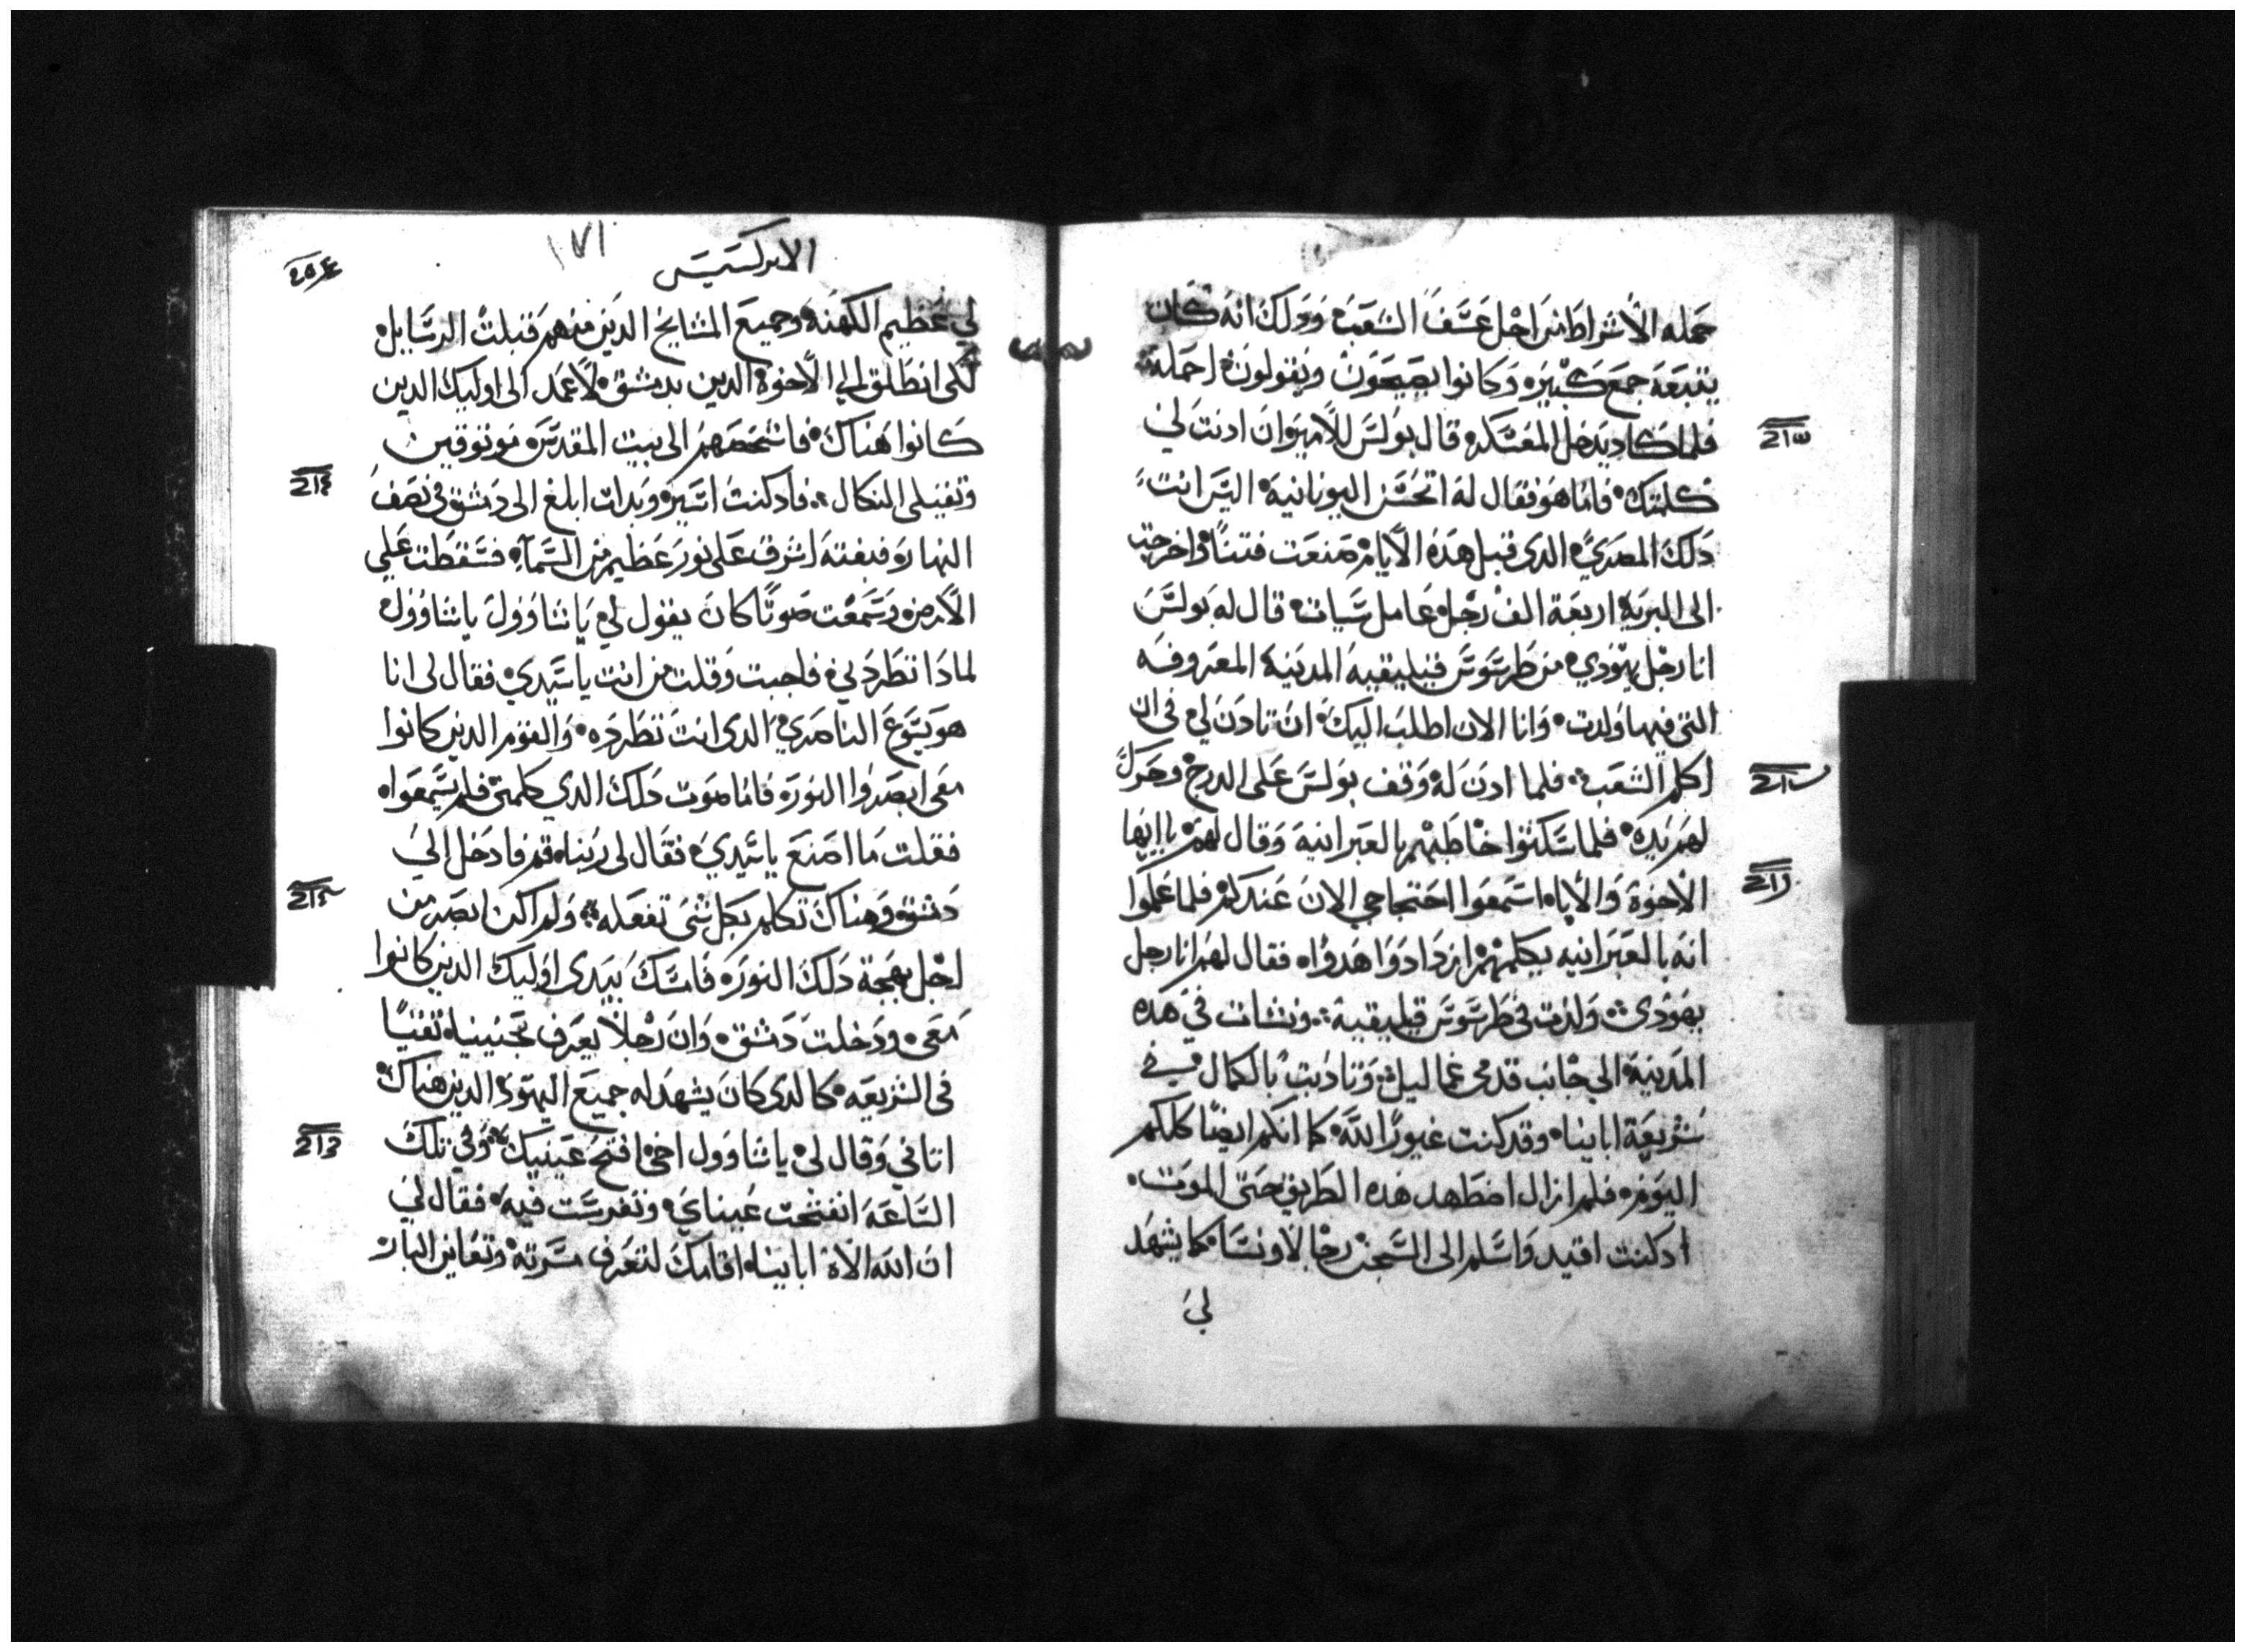 حمله الاشراط من اجل عسف الشعب وذلك انه كان
يتبعه جمع كبير وكانوا يصيحون ويقولون احمله
فلما كاد يدخل المعسكر قال بولس للامير ان ادنت لي
كلمتك فاما هو فقال له اتحسن اليونانية اليس انت
دلك المصري الدي قبل هده الايام صنعت فتنا واخرجت
الى البرية اربعة الف رجل عامل سيات قال له بولس
انا رجل يهودي من طرسوس قيليقيه المدينة المعروفه
التي فيها ولدت وانا الان اطلب اليك ان تادن لي في ان
اكلم الشعب فلما ادن له وقف بولس على الدرج وحرك
لهم يده فلما سكتوا خاطبهم بالعبرانية وقال لهم يا ايها
الاخوة والاباء اسمعوا احتجاجي الان عندكم فلما علموا
انه بالعبرانيه يكلمهم ازدادوا هدوا فقال لهم انا رجل
يهودي ولدت في طرسوس قيليقية ونشات في هده
المدينة الى جانب قدمي غماليل وتادبت بالكمال في
شريعة اباينا وقد كنت غيورا لله كما انكم ايضا كلكم
اليوم فلم ازال اضطهد هده الطريق حتى الموت
ادكنت اقيد واسلم الى السجن رجالا ونسا كما يشهد
لي
الابركسيس
١٧١
لي عظيم الكهنة وجميع المشايخ الدين منهم قبلت الرسايل
لكي انطلق الى الاخوة الدين بدمشق لاعمد الى اوليك الدين
كانوا هناك فاشخصهم الى بيت المقدس موتوقين
وتقبلى النكال فادكنت اسير وبدات ابلغ الى دمشق في نصف
النهار وبغتة اشرق على نور عظيم من السماء فسقطت على
الارض وسمعت صوتا كان يقول لي يا شاوول يا شاوول
لمادا تطردني فاجبت وقلت من انت يا سيدي فقال لى انا
هو يسوع الناصري الدى انت تطرده والقوم الدين كانوا
معى ابصروا النور فاما صوت دلك الدي كلمني فلم يسمعوا
فقلت ما اصنع يا سيدي فقال لى ربنا قم فادخل الي
دمشق وهناك تكلم بكل شى تفعله ولم اكن ابصر من
اجل بهجة دلك النور فامسك بيدى اوليك الدين كانوا
معي ودخلت دمشق وان رجلا يعرف بحنينيا تقيا
في الشريعه كالدى كان يشهد له جميع اليهود الدين هناك
اتاني وقال لي يا شاوول اخي افتح عينيك وفي تلك
الساعة انفتحت عيناي وتفرست فيه فقال لي
ان الله الاه اباينا اقامك لتعرف مسرته وتعاين البار